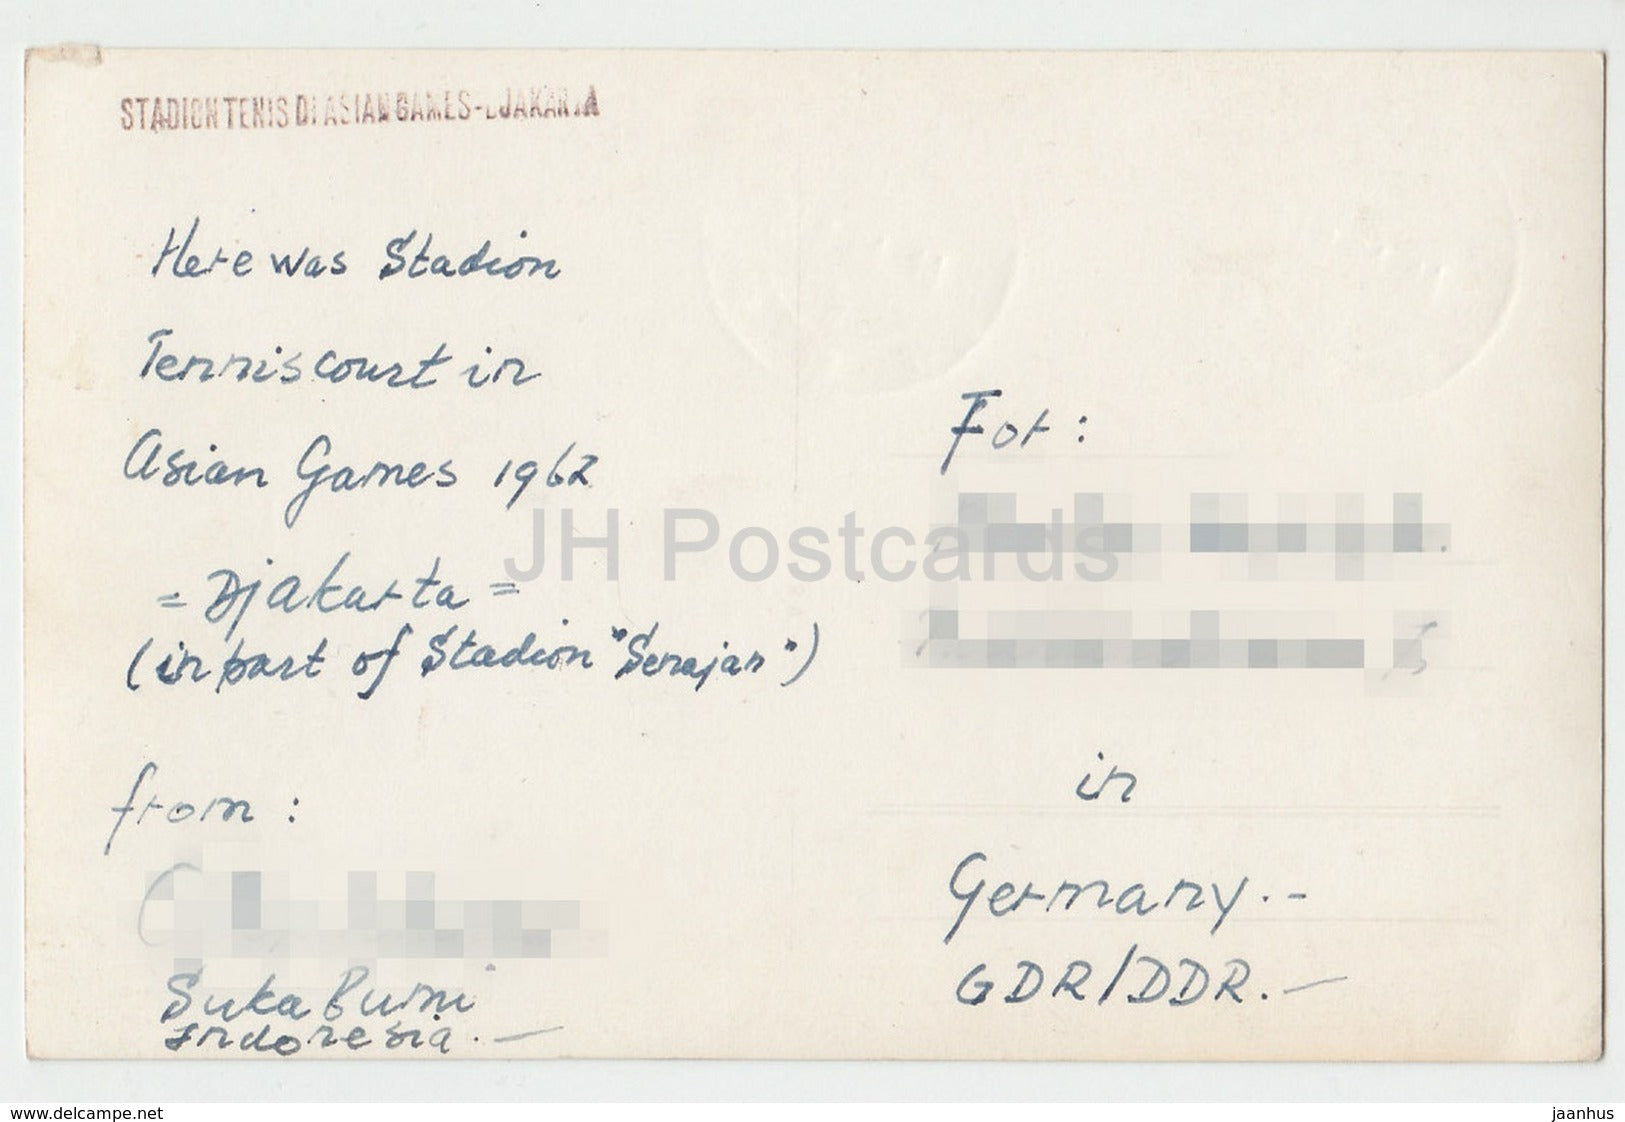 STADION TENIS DI ASIAN GAMES-DJAKARTA
Here was Stadion
Tennis court in
Asian Games 1962
= Djakarta =
(in part of Stadion "Senajan")
from :
Sukabumi
Indonesia.-
For :
in
Germany.-
GDR/DDR.-
JH Postcards
www.delcampe.net
jaanhus